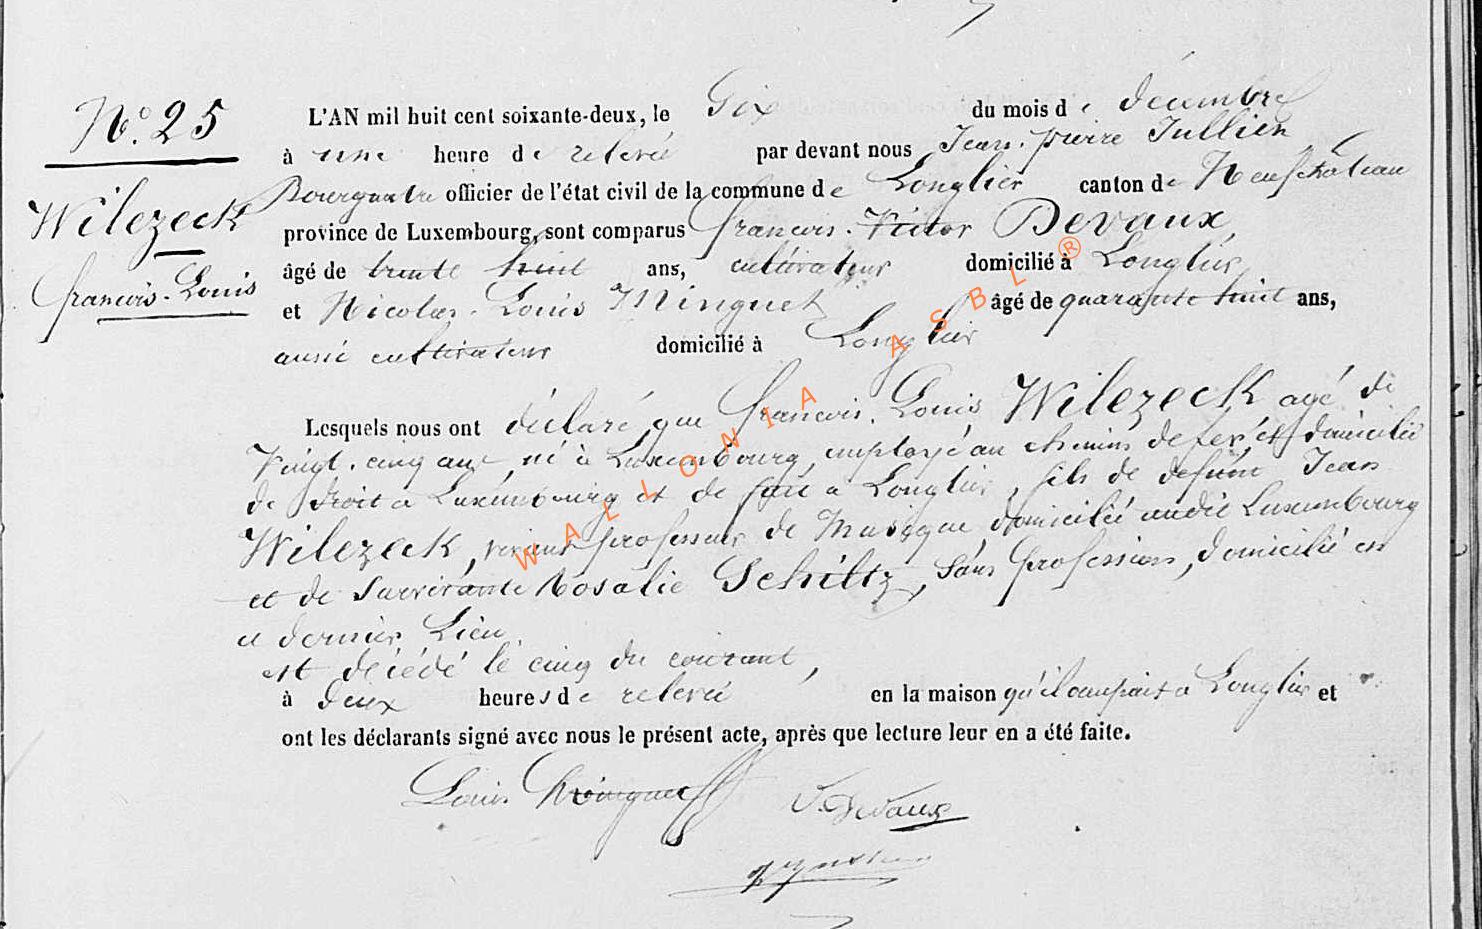 N.° 25
Wilezeck
francois-Louis
L'AN mil huit cent soixante-deux, le Six du mois de décembre
à une heure de relevée par devant nous Jean-pierre Jullien
Bourgmestre officier de l'état civil de la commune de Longlier canton de Neufchâteau
province de Luxembourg, sont comparus francois-Victor Devaux,
âgé de trente huit ans, cultivateur domicilié à Longlier
et Nicolas-Louis Minguet âgé de quarante huit ans,
aussi cultivateur domicilié à Longlier
Lesquels nous ont déclaré que francois-Louis Wilezeck agé de
Vingt-cinq ans, né à Luxembourg, employé au chemins de fer et domicilié
de droit a Luxembourg et de fait a Longlier, fils de defunt Jean
Wilezeck, vivant professeur de Musique domicilié audit Luxembourg
et de Survivante Rosalie Schiltz, sans profession, domicilié en
ce dernier Lieu
est décédé le cinq du courant,
à deux heures de relevée en la maison qu'il occupait a Longlier et
ont les déclarants signé avec nous le présent acte, après que lecture leur en a été faite.
Louis Minguet
V. Devaux
WALLONIA ASBL ®